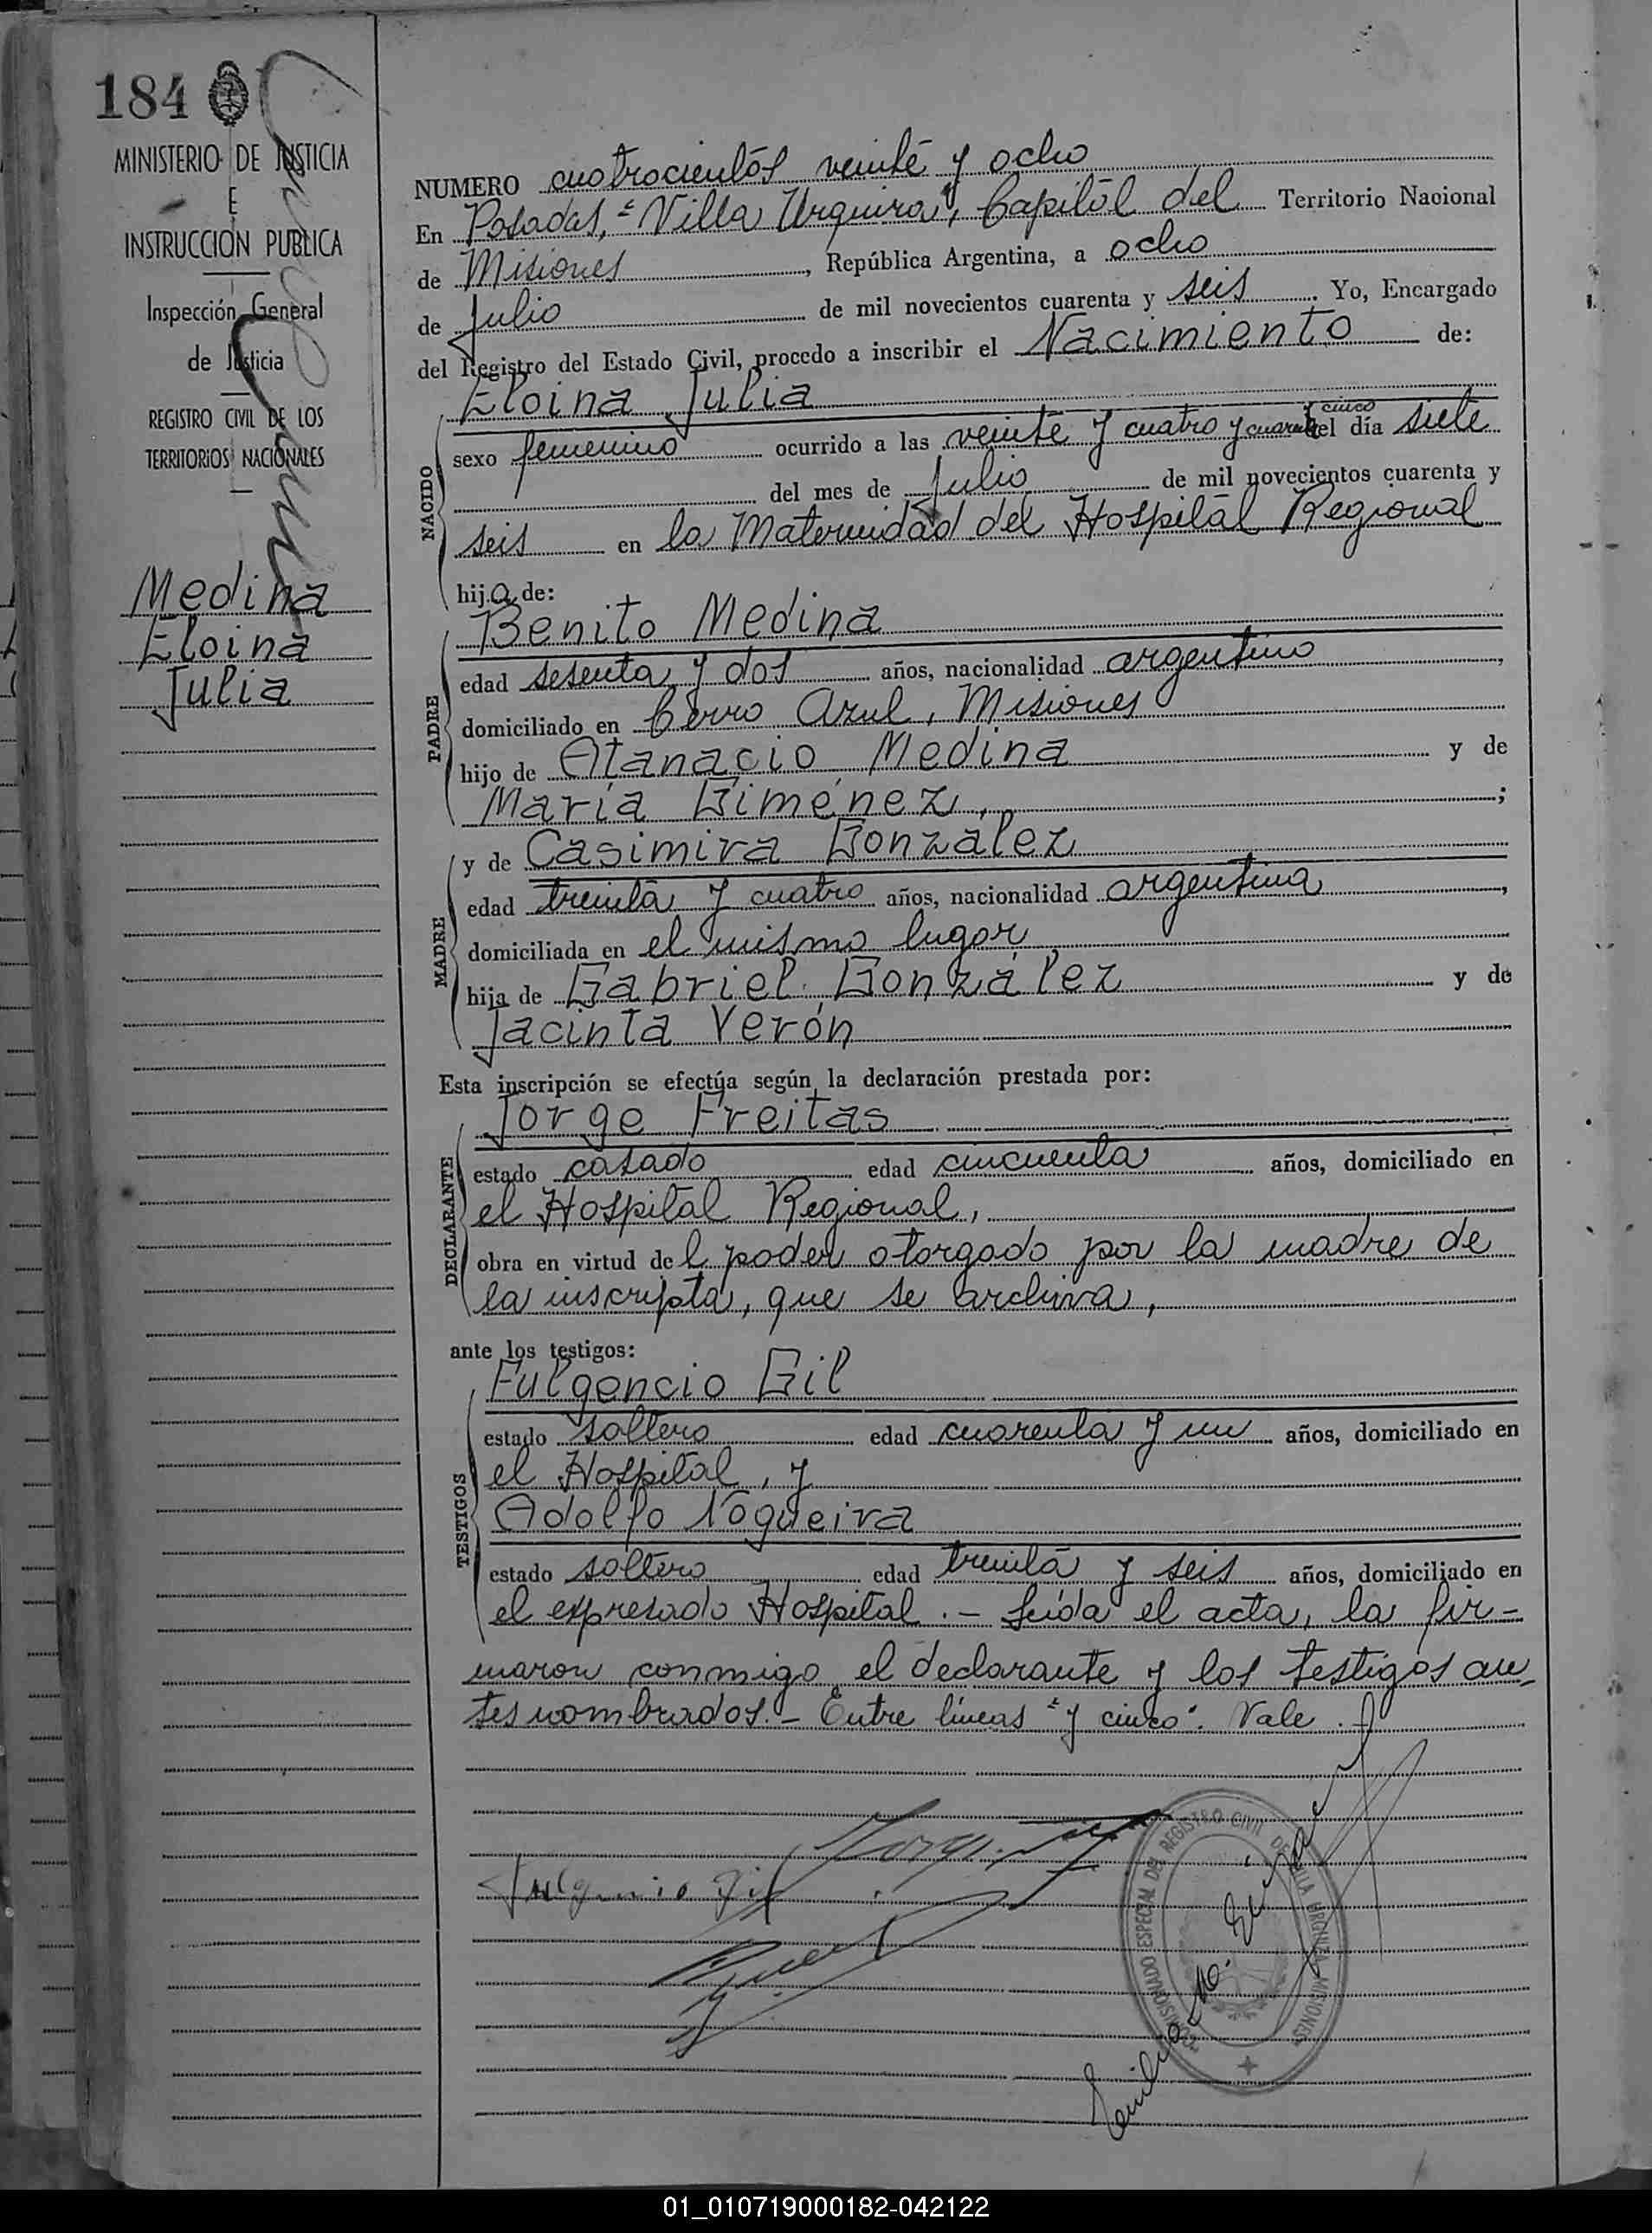 184
MINISTERIO DE JUSTICIA
E
INSTRUCCION PUBLICA
Inspección General
de Justicia
REGISTRO CIVIL DE LOS
TERRITORIOS NACIONALES
Medina
Eloina
Julia
NUMERO cuatrocientos veinte y ocho
En Posadas, "Villa Urquiza", Capital del Territorio Nacional
de Misiones, República Argentina, a ocho
de Julio de mil novecientos cuarenta y seis. Yo, Encargado
del Registro del Estado Civil, procedo a inscribir el Nacimiento de:
Eloina Julia
NACIDO
y cinco
sexo femenino ocurrido a las veinte y cuatro y cuarenta del día siete
del mes de Julio de mil novecientos cuarenta y
seis en la Maternidad del Hospital Regional
hija de:
Benito Medina
PADRE
edad sesenta y dos años, nacionalidad argentino,
domiciliado en Cerro Azul, Misiones
hijo de Atanacio Medina y de
María Giménez, ;
y de Casimira González
MADRE
edad treinta y cuatro años, nacionalidad argentina,
domiciliada en el mismo lugar
hija de Gabriel González y de
Jacinta Verón
Esta inscripción se efectúa según la declaración prestada por:
Jorge Freitas
DECLARANTE
estado casado edad cincuenta años, domiciliado en
el Hospital Regional,
obra en virtud del poder otorgado por la madre de
la inscripta, que se archiva,
ante los testigos:
Fulgencio Gil
TESTIGOS
estado soltero edad cuarenta y un años, domiciliado en
el Hospital, y
Adolfo Nogueira
estado soltero edad treinta y seis años, domiciliado en
el expresado Hospital.- Leída el acta, la fir-
maron conmigo el declarante y los testigos an-
tes nombrados.- Entre líneas "y cinco". Vale.
Fulgencio Gil
REGISTRO CIVIL DE VILLA URQUIZA MISIONES
01_010719000182-042122